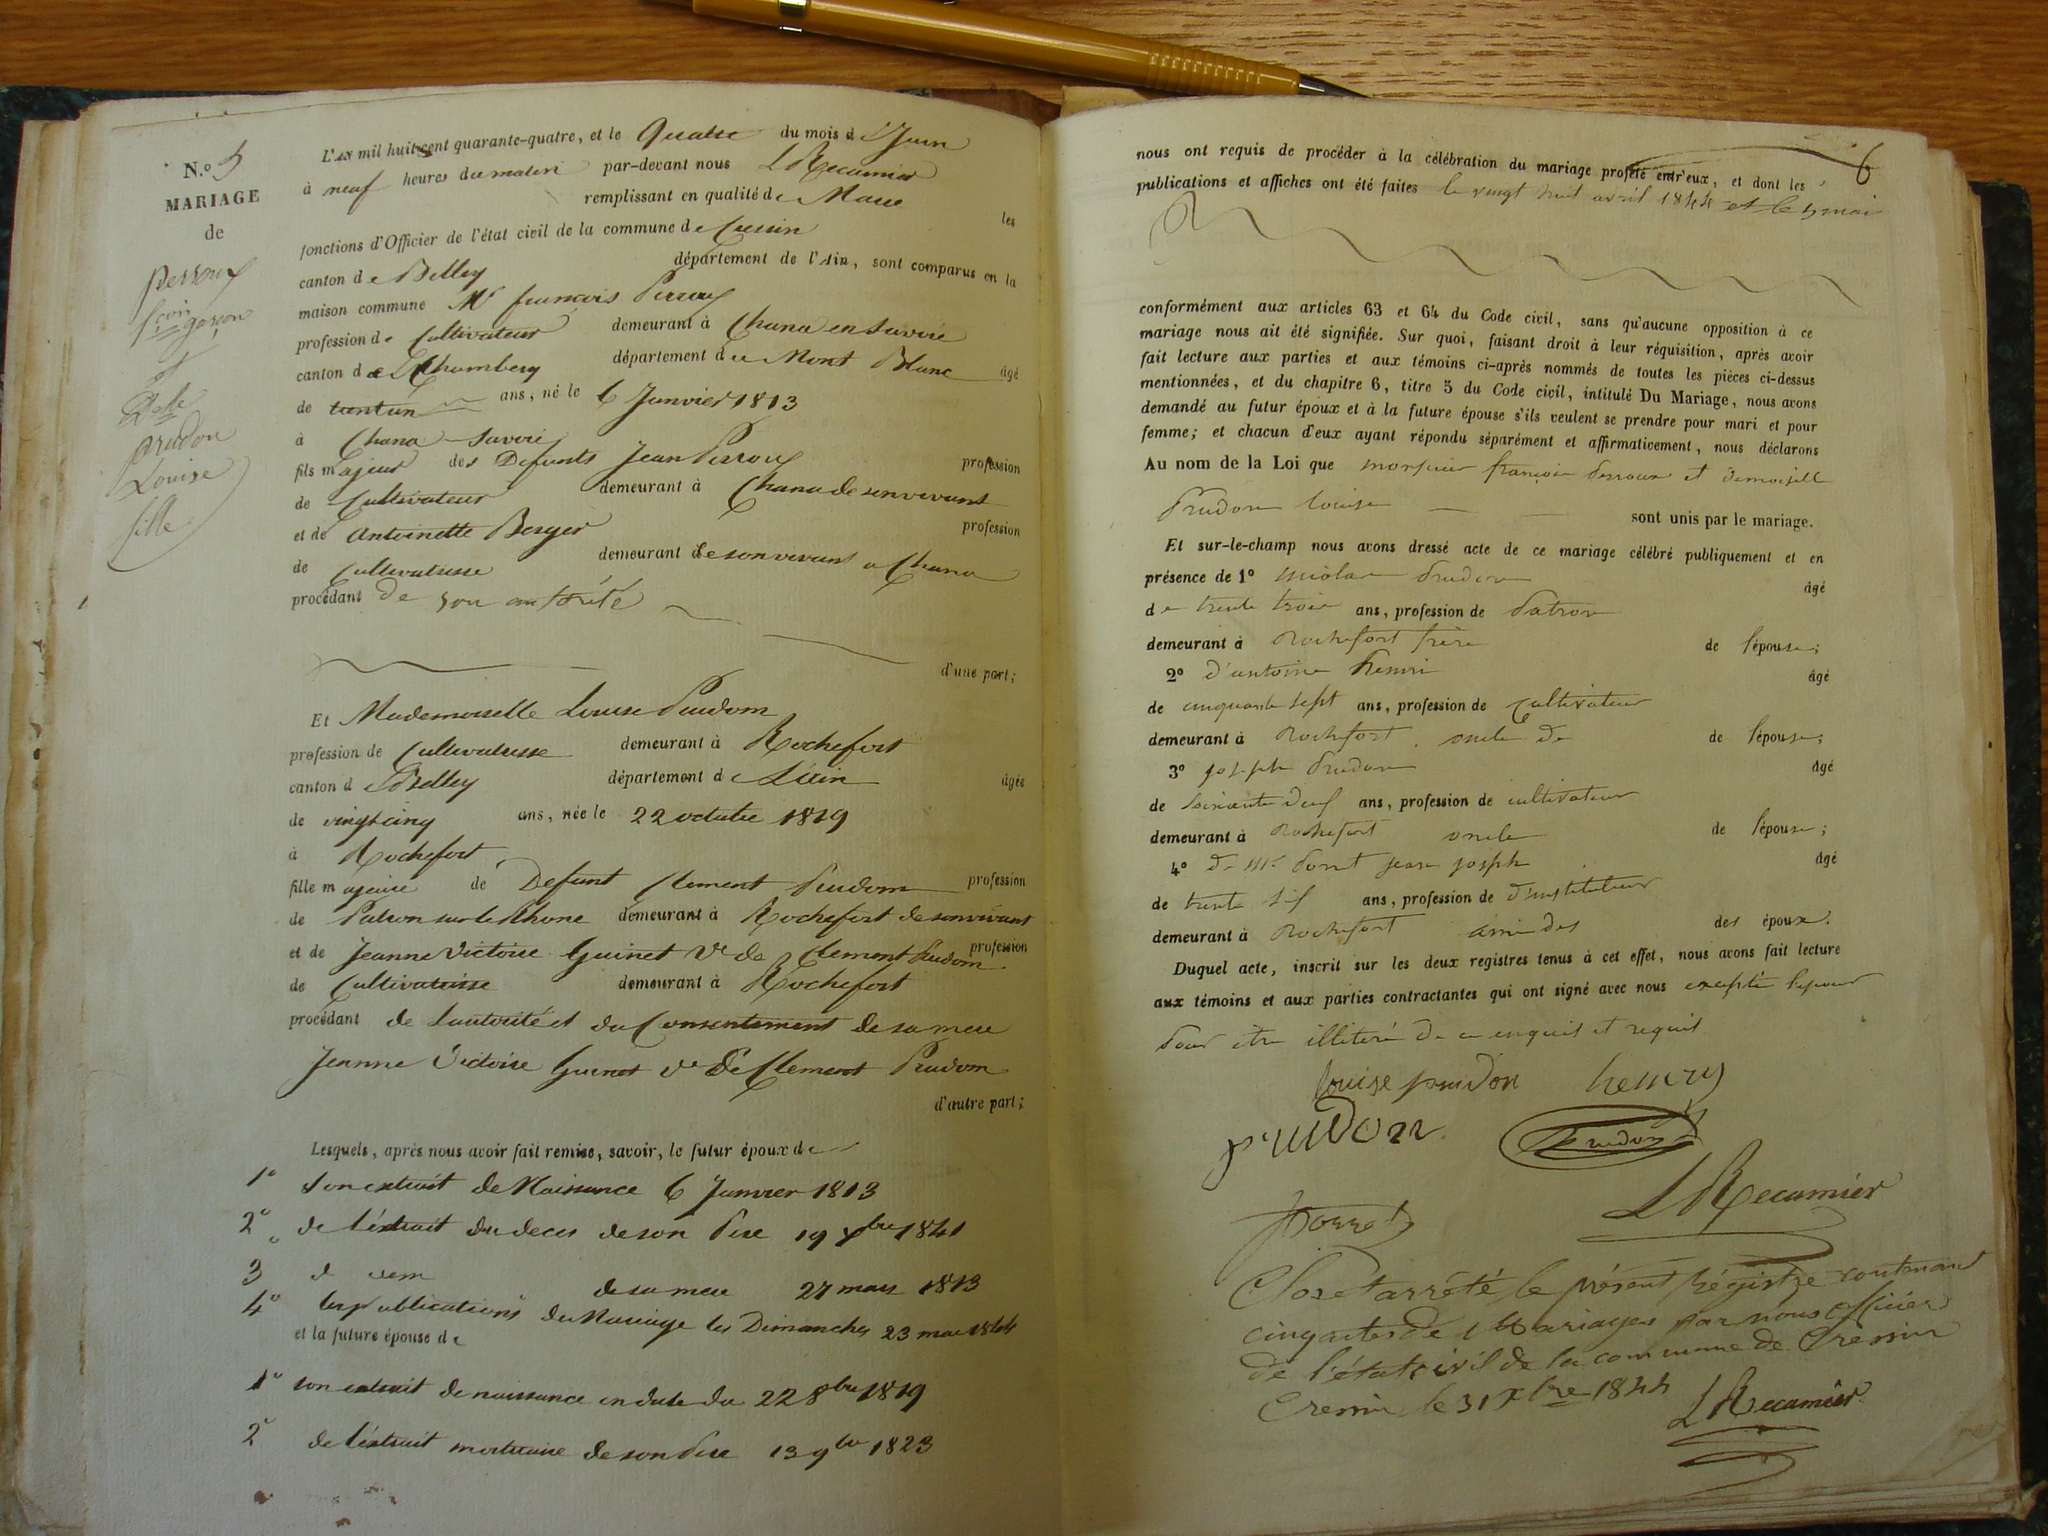 N.º 5
MARIAGE
de
perroux
fçois garçon
et
Delle
prudon
Louise
fille
L'AN mil huit cent quarante-quatre, et le Quatre du mois de Juin
à neuf heures du matin par-devant nous L Recamier
remplissant en qualité de Maire les
fonctions d'Officier de l'état civil de la commune de Cressin
canton de Belley département de l'AIN, sont comparus en la
maison commune Mr françois Perroux
profession de Cultivateur demeurant à Chana en Savoie
canton de Chambery département du Mont Blanc âgé
de trentun ans, né le 6 Janvier 1813
à Chana Savoie
fils majeur des Defunts Jean Perroux profession
de Cultivateur demeurant à Chana de son vivant
et de Antoinette Berger profession
de Cultivatrisse demeurant de son vivant a Chana
procédant de son autorité
d'une part;
Et Mademoiselle Louise Prudom
profession de Cultivatrisse demeurant à Rochefort
canton de Belley département de L'ain âgée
de vingt cinq ans, née le 22 octobre 1819
à Rochefort
fille majeure de Defunt Clement Prudom profession
de Patron sur le Rhone demeurant à Rochefort de son vivant
et de Jeanne Victoise Guinet Ve de Clement Prudom profession
de Cultivatrisse demeurant à Rochefort
procédant de Lautorité et du Consentement de sa mere
Jeanne Victoise Guinet Ve De Clement Prudom
d'autre part;
Lesquels, après nous avoir fait remise, savoir, le futur époux de
1º son extrait de Naissance 6 Janvier 1813
2º de l'éxtrait du deces de son Pere 19 xbre 1841
3 idem de sa mere 27 mars 1813
4º les publications du Mariage les Dimanches 23 mai 1844
et la future épouse de
1º son extrait de naissance en date du 22 8bre 1819
2º de l'éxtrait mortuaire de son Pere 13 9bre 1823
6
nous ont requis de procéder à la célébration du mariage projeté entr'eux, et dont les
publications et affiches ont été faites le vingt huit avril 1844 et le 5 mai
conformément aux articles 63 et 64 du Code civil, sans qu'aucune opposition à ce
mariage nous ait été signifiée. Sur quoi, faisant droit à leur réquisition, après avoir
fait lecture aux parties et aux témoins ci-après nommés de toutes les pièces ci-dessus
mentionnées, et du chapitre 6, titre 5 du Code civil, intitulé Du Mariage, nous avons
demandé au futur époux et à la future épouse s'ils veulent se prendre pour mari et pour
femme; et chacun d'eux ayant répondu séparément et affirmativement, nous déclarons
Au nom de la Loi que monsieur françois perroux et Demoiselle
Prudon louise sont unis par le mariage.
Et sur-le-champ nous avons dressé acte de ce mariage célébré publiquement et en
présence de 1º nicolas Prudon âgé
de trente trois ans, profession de Patron
demeurant à Rochefort frère de l'épouse;
2º d'antoine henri âgé
de cinquante sept ans, profession de Cultivateur
demeurant à Rochefort oncle de de l'épouse;
3º joseph Prudon âgé
de soixante ans, profession de cultivateur
demeurant à Rochefort oncle de l'épouse;
4º De mr jean joseph âgé
de trente ans, profession de D'instituteur
demeurant à Rochefort ami des des époux.
Duquel acte, inscrit sur les deux registres tenus à cet effet, nous avons fait lecture
aux témoins et aux parties contractantes qui ont signé avec nous excepté l'epoux
Pour être illiteré De ce enquis et requis
louise prudon henry
prudon Prudon
L Recamier
Clos et arrêté le présent Régistre contenant
cinq actes de Mariages par nous officier
de l'état civil de la commune de Cressin
Cressin le 31 Xbre 1844 L Recamier